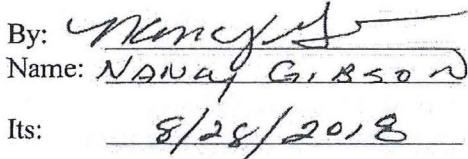 By: Nancy G
Name: NANCY GIBSON
Its: 8/28/2018